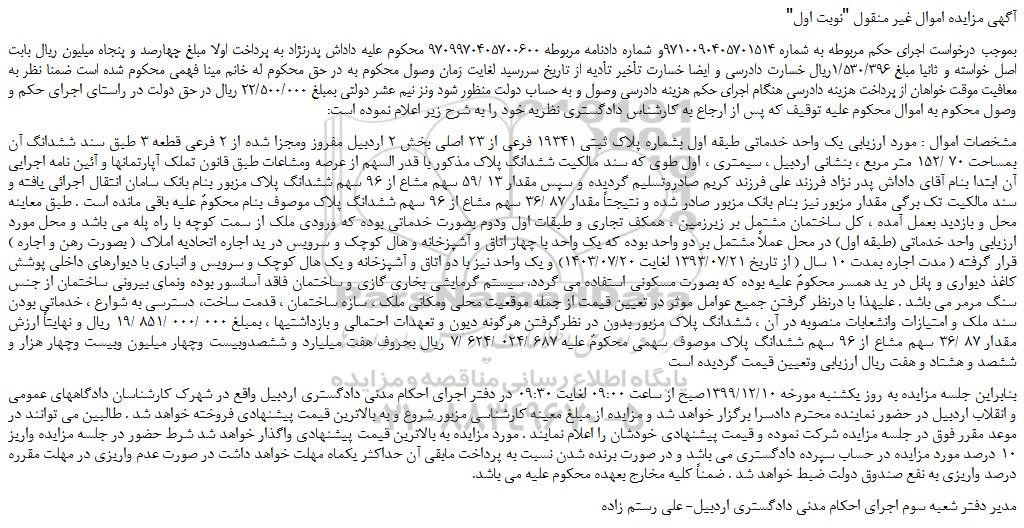 آگهی مزایده اموال غیر منقول "نوبت اول"
بموجب درخواست اجرای حکم مربوطه به شماره ۹۷۱۰۰۹۰۴۰۵۷۰۱۵۱۴و شماره دادنامه مربوطه ۹۷۰۹۹۷۰۴۰۵۷۰۰۶۰۰ محکوم علیه داداش پدرنژاد به پرداخت اولا مبلغ چهارصد و پنجاه میلیون ریال بابت
اصل خواسته و ثانیا مبلغ ۱/۵۳۰/۳۹۶ریال خسارت دادرسی و ایضا خسارت تأخیر تأدیه از تاریخ سررسید لغایت زمان وصول محکوم به در حق محکوم له خانم مینا فهمی محکوم شده است ضمنا نظر به
معافیت موقت خواهان از پرداخت هزینه دادرسی هنگام اجرای حکم هزینه دادرسی وصول و به حساب دولت منظور شود ونز نیم عشر دولتی بمبلغ ۲۲/۵۰۰/۰۰۰ ریال در حق دولت در راستای اجرای حکم و
وصول محکوم به اموال محکوم علیه توقیف که پس از ارجاع به کارشناس دادگستری نظریه خود را به شرح زیر اعلام نموده است:
مشخصات اموال : مورد ارزیابی یک واحد خدماتی طبقه اول بشماره پلاک ثبتی ۱۹۳۴۱ فرعی از ۲۳ اصلی بخش ۲ اردبیل مفروز ومجزا شده از ۲ فرعی قطعه ۳ طبق سند ششدانگ آن
بمساحت ۷۰ /۱۵۲ متر مربع ، بنشانی اردبیل ، سیمتری ، اول طوی که سند مالکیت ششدانگ پلاک مذکور با قدر السهم از عرصه ومشاعات طبق قانون تملک آپارتمانها و آئین نامه اجرایی
آن ابتدا بنام آقای داداش پدر نژاد فرزند علی فرزند کریم صادروتسلیم گردیده و سپس مقدار ۱۳ /۵۹ سهم مشاع از ۹۶ سهم ششدانگ پلاک مزبور بنام بانک سامان انتقال اجرائی یافته و
سند مالکیت تک برگی مقدار مزبور نیز بنام بانک مزبور صادر شده و نتیجتاً مقدار ۸۷ /۳۶ سهم مشاع از ۹۶ سهم ششدانگ پلاک موصوف بنام محکومٌ علیه باقی مانده است . طبق معاینه
محل و بازدید بعمل آمده ، کل ساختمان مشتمل بر زیرزمین ، همکف تجاری و طبقات اول ودوم بصورت خدماتی بوده که ورودی ملک از سمت کوچه با راه پله می باشد و محل مورد
ارزیابی واحد خدماتی (طبقه اول) در محل عملاً مشتمل بر دو واحد بوده که یک واحد با چهار اتاق و آشپزخانه و هال کوچک و سرویس در ید اجاره اتحادیه املاک ( بصورت رهن و اجاره )
قرار گرفته ( مدت اجاره بمدت ۱۰ سال ( از تاریخ ۱۳۹۳/۰۷/۲۱ لغایت ۱۴۰۳/۰۷/۲۰) و یک واحد نیز با دو اتاق و آشپزخانه و یک هال کوچک و سرویس و انباری با دیوارهای داخلی پوشش
کاغذ دیواری و پانل در ید همسر محکومٌ علیه بوده که بصورت مسکونی استفاده می گردد. سیستم گرمایشی بخاری گازی و ساختمان فاقد آسانسور بوده ونمای بیرونی ساختمان از جنس
سنگ مرمر می باشد . علیهذا با درنظر گرفتن جمیع عوامل موثر در تعیین قیمت از جمله موقعیت محلی ومکانی ملک ، سازه ساختمان ، قدمت ساخت، دسترسی به شوارع ، خدماتی بودن
سند ملک و امتیازات وانشعابات منصوبه در آن ، ششدانگ پلاک مزبور بدون در نظرگرفتن هرگونه دیون و تعهدات احتمالی و بازداشتیها ، بمبلغ ۰۰۰ /۰۰۰ /۸۵۱ /۱۹ ریال و نهایتاً ارزش
مقدار ۸۷ /۳۶ سهم مشاع از ۹۶ سهم ششدانگ پلاک موصوف سهمی محکومٌ علیه ۶۸۷ /۰۲۴ /۶۲۴ /۷ ریال بحروف هفت میلیارد و ششصدوبیست وچهار میلیون وبیست وچهار هزار و
ششصد و هشتاد و هفت ریال ارزیابی وتعیین قیمت گردیده است
پایگاه اطلاع رسانی مناقصه و مزایده
بنابراین جلسه مزایده به روز یکشنبه مورخه ۱۳۹۹/۱۲/۱۰صبح از ساعت ۰۹:۰۰ لغایت ۰۹:۳۰ در دفتر اجرای احکام مدنی دادگستری اردبیل واقع در شهرک کارشناسان دادگاههای عمومی
و انقلاب اردبیل در حضور نماینده محترم دادسرا برگزار خواهد شد و مزایده از مبلغ معینه کارشناسی مزبور شروع و به بالاترین قیمت پیشنهادی فروخته خواهد شد . طالبین می توانند در
موعد مقرر فوق در جلسه مزایده شرکت نموده و قیمت پیشنهادی خودشان را اعلام نمایند . مورد مزایده به بالاترین قیمت پیشنهادی واگذار خواهد شد شرط حضور در جلسه مزایده واریز
۱۰ درصد مورد مزایده در حساب سپرده دادگستری می باشد و در صورت برنده شدن نسبت به پرداخت مابقی آن حداکثر یکماه مهلت خواهد داشت در صورت عدم واریزی در مهلت مقرره
درصد واریزی به نفع صندوق دولت ضبط خواهد شد . ضمناً کلیه مخارج بعهده محکوم علیه می باشد.
مدیر دفتر شعبه سوم اجرای احکام مدنی دادگستری اردبیل- علی رستم زاده